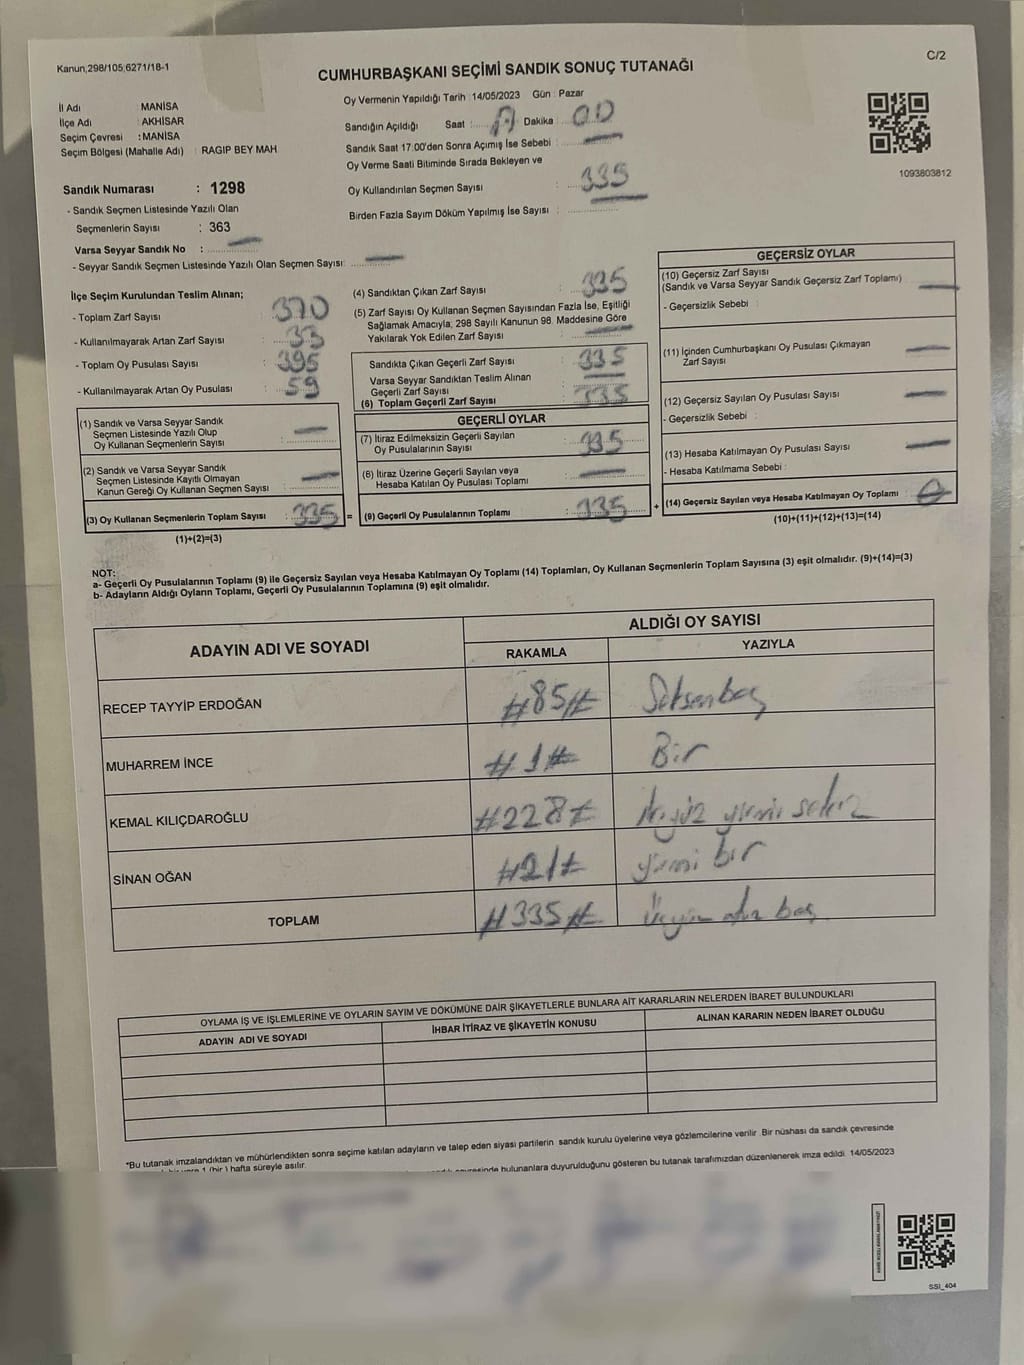 Kanun;298/105;6271/18-1
C/2
CUMHURBAŞKANI SEÇİMİ SANDIK SONUÇ TUTANAĞI
İl Adı : MANİSA
İlçe Adı : AKHİSAR
Seçim Çevresi : MANİSA
Seçim Bölgesi (Mahalle Adı) : RAGIP BEY MAH
Sandık Numarası : 1298
- Sandık Seçmen Listesinde Yazılı Olan
Seçmenlerin Sayısı : 363
Varsa Seyyar Sandık No :
- Seyyar Sandık Seçmen Listesinde Yazılı Olan Seçmen Sayısı:
Oy Vermenin Yapıldığı Tarih : 14/05/2023 Gün : Pazar
Sandığın Açıldığı Saat : Dakika : 00
Sandık Saat 17.00'den Sonra Açımış İse Sebebi :
Oy Verme Saati Bitiminde Sırada Bekleyen ve
Oy Kullandırılan Seçmen Sayısı : 335
Birden Fazla Sayım Döküm Yapılmış İse Sayısı :
1093803812
İlçe Seçim Kurulundan Teslim Alınan;
- Toplam Zarf Sayısı : 370
- Kullanılmayarak Artan Zarf Sayısı : 33
- Toplam Oy Pusulası Sayısı : 395
- Kullanılmayarak Artan Oy Pusulası : 59
(1) Sandık ve Varsa Seyyar Sandık
Seçmen Listesinde Yazılı Olup
Oy Kullanan Seçmenlerin Sayısı :
(2) Sandık ve Varsa Seyyar Sandık
Seçmen Listesinde Kayıtlı Olmayan
Kanun Gereği Oy Kullanan Seçmen Sayısı :
(3) Oy Kullanan Seçmenlerin Toplam Sayısı : 335 =
(1)+(2)=(3)
(4) Sandıktan Çıkan Zarf Sayısı : 335
(5) Zarf Sayısı Oy Kullanan Seçmen Sayısından Fazla İse, Eşitliği
Sağlamak Amacıyla; 298 Sayılı Kanunun 98. Maddesine Göre
Yakılarak Yok Edilen Zarf Sayısı :
Sandıkta Çıkan Geçerli Zarf Sayısı : 335
Varsa Seyyar Sandıktan Teslim Alınan
Geçerli Zarf Sayısı :
(6) Toplam Geçerli Zarf Sayısı : 335
GEÇERLİ OYLAR
(7) İtiraz Edilmeksizin Geçerli Sayılan
Oy Pusulalarının Sayısı : 335
(8) İtiraz Üzerine Geçerli Sayılan veya
Hesaba Katılan Oy Pusulası Toplamı :
(9) Geçerli Oy Pusulalarının Toplamı : 335 +
GEÇERSİZ OYLAR
(10) Geçersiz Zarf Sayısı
(Sandık ve Varsa Seyyar Sandık Geçersiz Zarf Toplamı) :
- Geçersizlik Sebebi :
(11) İçinden Cumhurbaşkanı Oy Pusulası Çıkmayan
Zarf Sayısı :
(12) Geçersiz Sayılan Oy Pusulası Sayısı :
- Geçersizlik Sebebi :
(13) Hesaba Katılmayan Oy Pusulası Sayısı :
- Hesaba Katılmama Sebebi :
(14) Geçersiz Sayılan veya Hesaba Katılmayan Oy Toplamı : 0
(10)+(11)+(12)+(13)=(14)
NOT:
a- Geçerli Oy Pusulalarının Toplamı (9) ile Geçersiz Sayılan veya Hesaba Katılmayan Oy Toplamı (14) Toplamları, Oy Kullanan Seçmenlerin Toplam Sayısına (3) eşit olmalıdır. (9)+(14)=(3)
b- Adayların Aldığı Oyların Toplamı, Geçerli Oy Pusulalarının Toplamına (9) eşit olmalıdır.
ADAYIN ADI VE SOYADI
ALDIĞI OY SAYISI
RAKAMLA YAZIYLA
RECEP TAYYİP ERDOĞAN #85# Seksenbeş
MUHARREM İNCE #1# Bir
KEMAL KILIÇDAROĞLU #228# ikiyüz yirmi sekiz
SİNAN OĞAN #21# yirmi bir
TOPLAM #335# Üçyüz otuz beş
OYLAMA İŞ VE İŞLEMLERİNE VE OYLARIN SAYIM VE DÖKÜMÜNE DAİR ŞİKAYETLERLE BUNLARA AİT KARARLARIN NELERDEN İBARET BULUNDUKLARI
ADAYIN ADI VE SOYADI
İHBAR İTİRAZ VE ŞİKAYETİN KONUSU
ALINAN KARARIN NEDEN İBARET OLDUĞU
*Bu tutanak imzalandıktan ve mühürlendikten sonra seçime katılan adayların ve talep eden siyasi partilerin sandık kurulu üyelerine veya gözlemcilerine verilir. Bir nüshası da sandık çevresinde
1 (bir) hafta süreyle asılır.
bulunanlara duyurulduğunu gösteren bu tutanak tarafımızdan düzenlenerek imza edildi. 14/05/2023
SSI_404